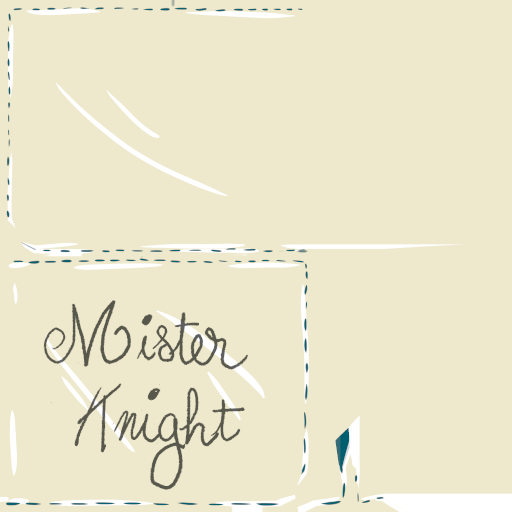 Mister
Knight